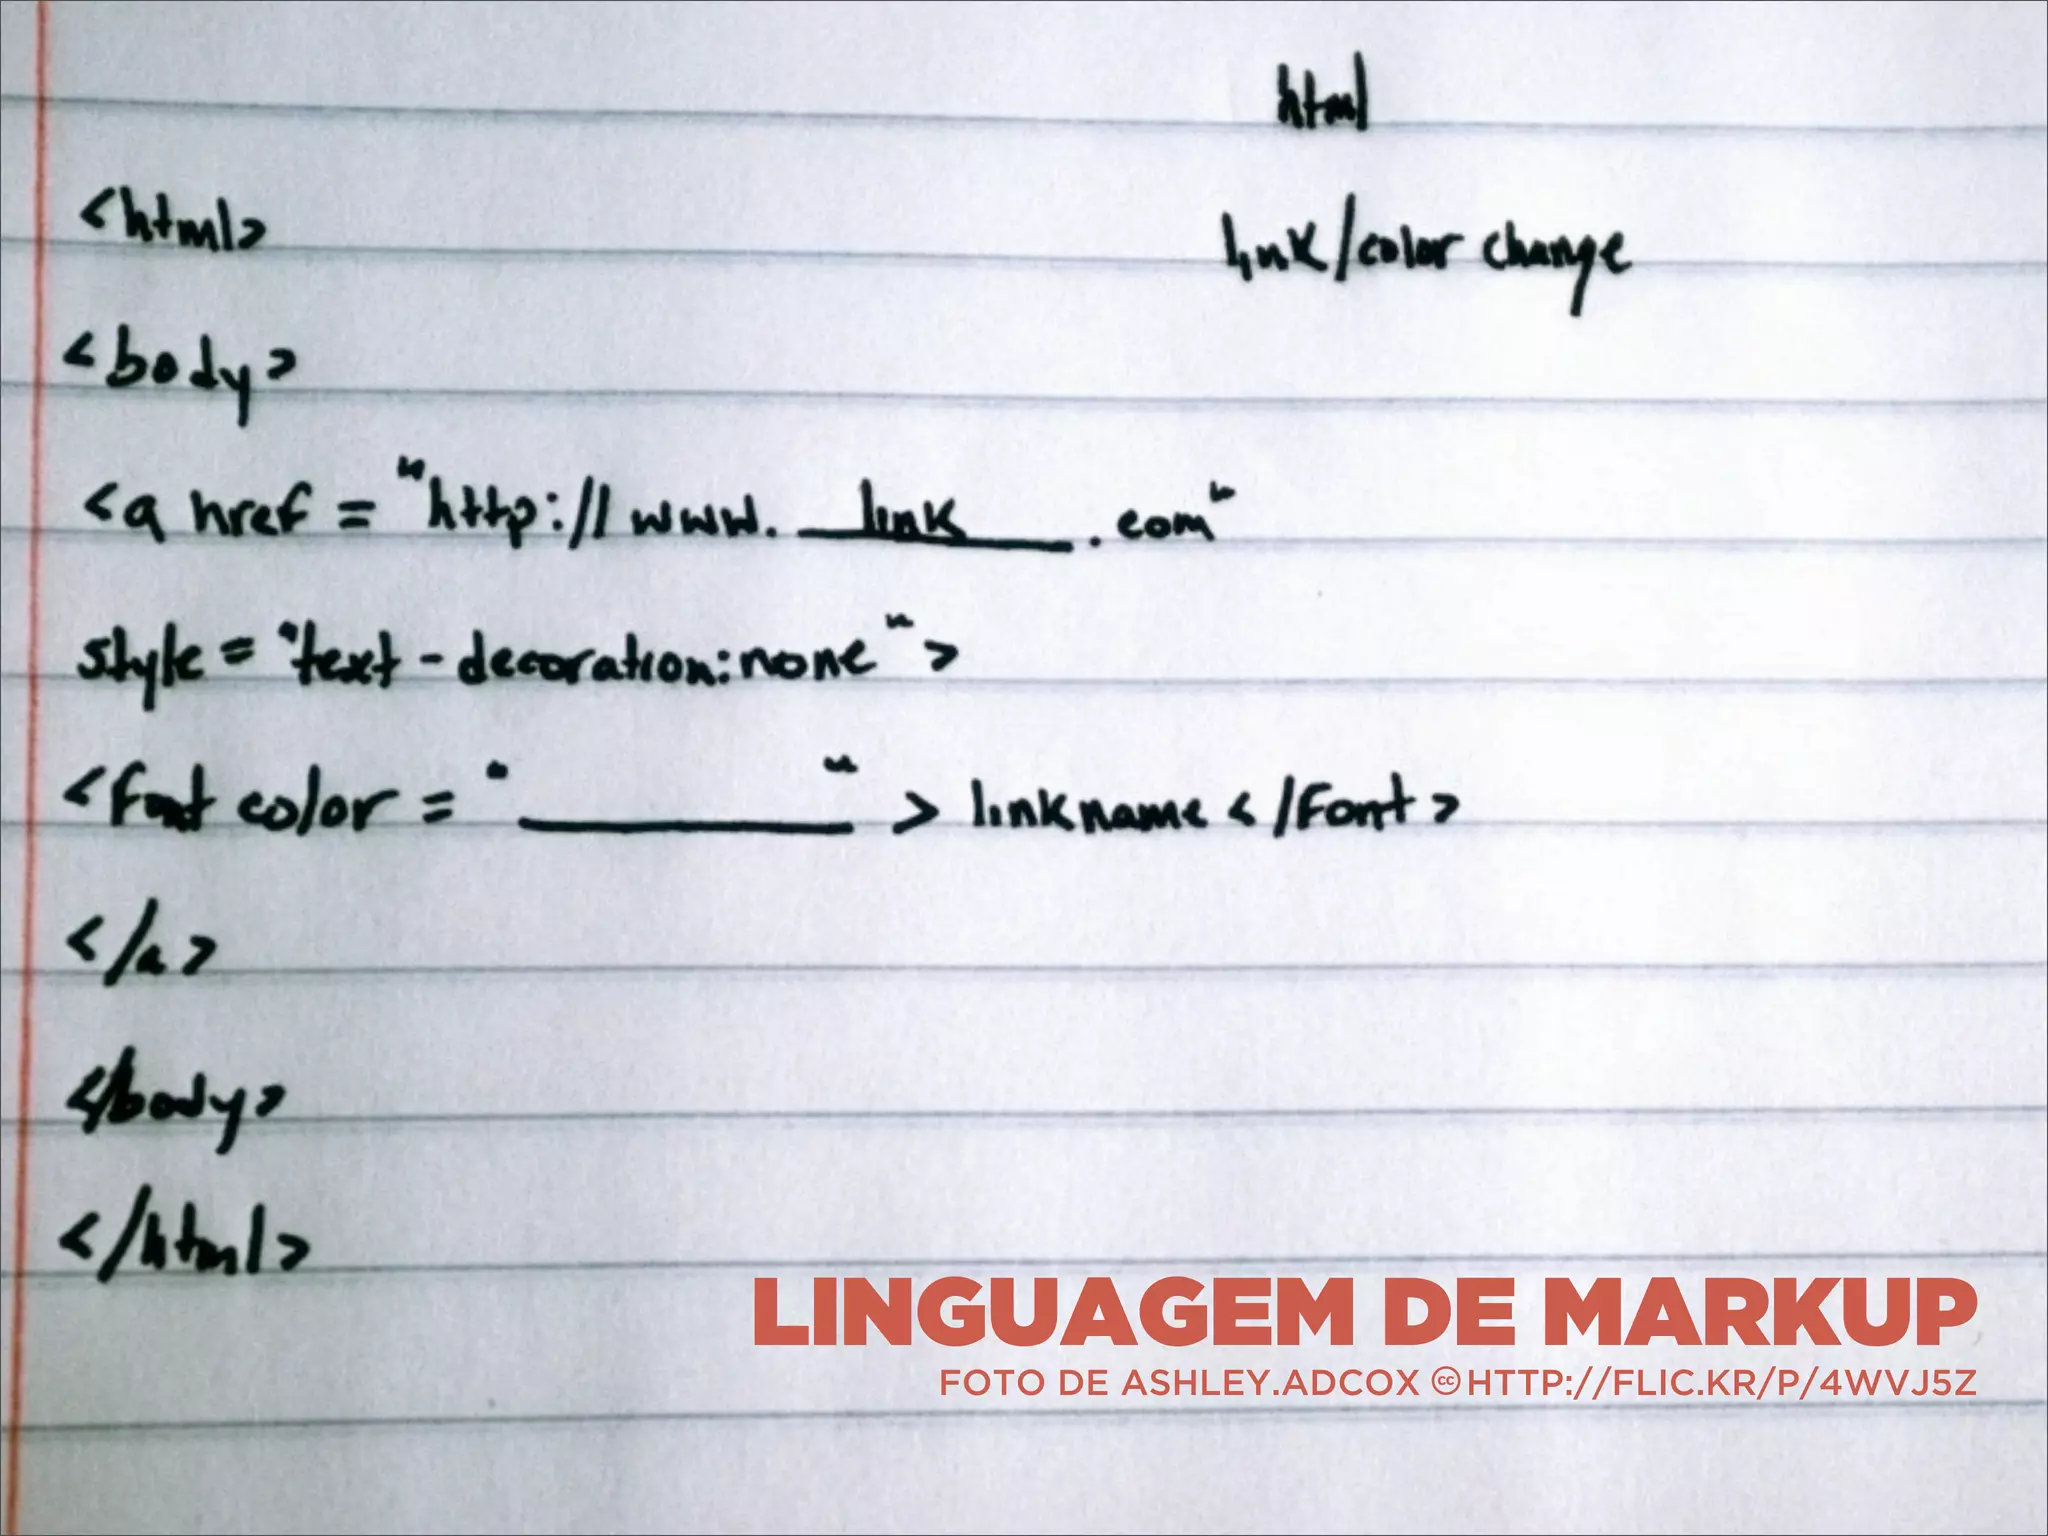 html
<html>
link/color change
<body>
<a href = "http://www. link .com"
style = "text-decoration:none">
<font color = "________"> linkname </font>
</a>
</body>
</html>
LINGUAGEM DE MARKUP
FOTO DE ASHLEY.ADCOX CC HTTP://FLIC.KR/P/4WVJ5Z